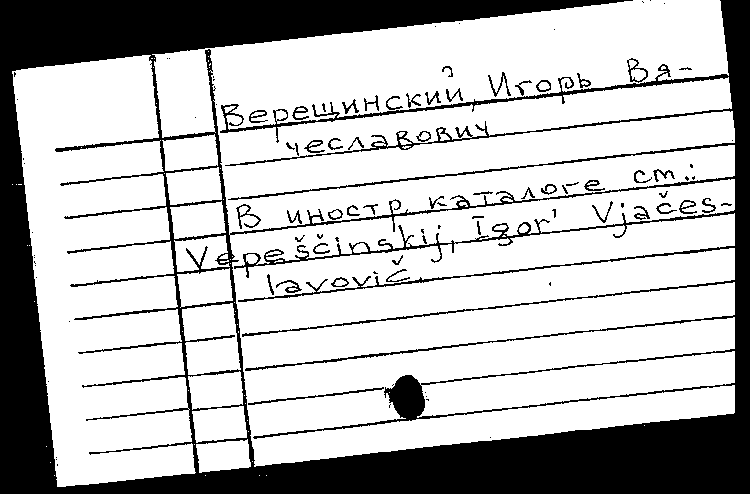 Верещинский, Игорь Вя-
чеславович
В иностр. каталоге см.:
Vepeščinskij, Igor' Vjačes-
lavovič.